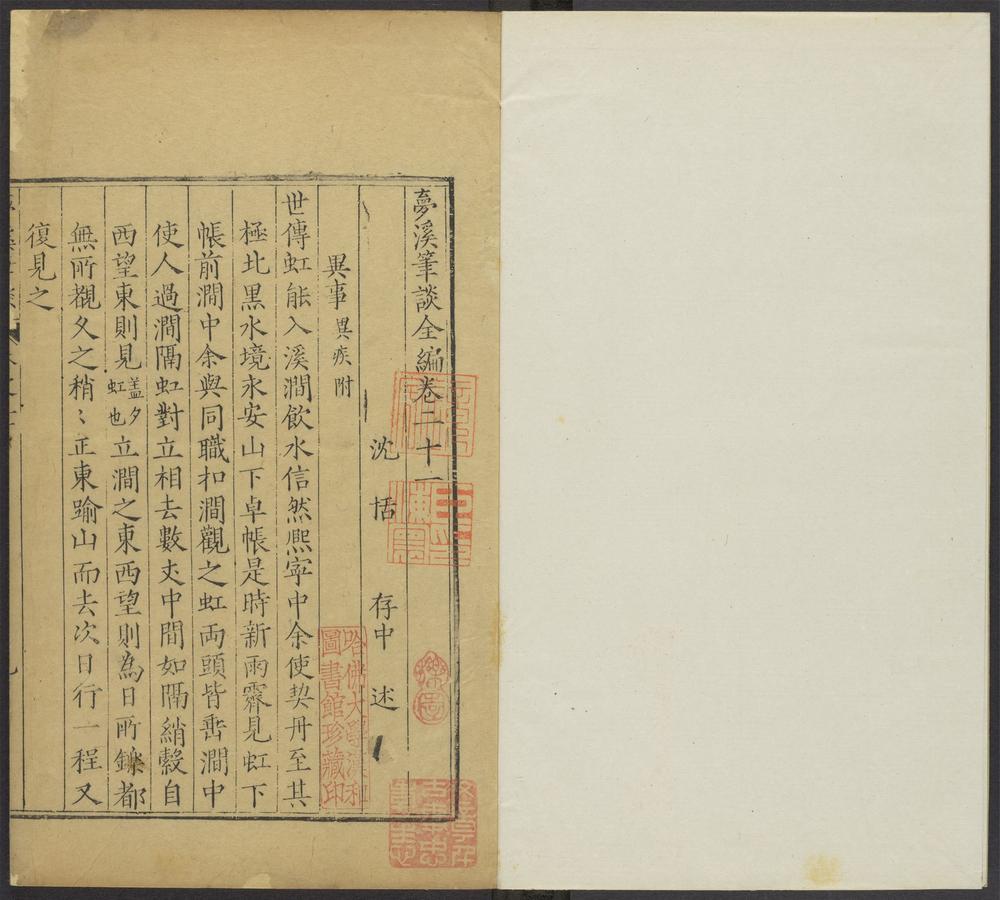 夢溪筆談全編卷二十一
沈 恬 存中 述
異事 異疾附
世傳虹能入溪澗飲水信然熈寧中余使契丹至其
極北黒水境永安山下卓帳是時新雨霽見虹下
帳前澗中余與同職扣澗觀之虹兩頭皆垂澗中
使人過澗隔虹對立相去數丈中間如隔綃縠自
西望東則見盖夕虹也立澗之東西望則為日所鑠都
無所覩久之稍〻正東踰山而去次日行一程又
復見之
哈佛大學漢和
圖書館珍藏印